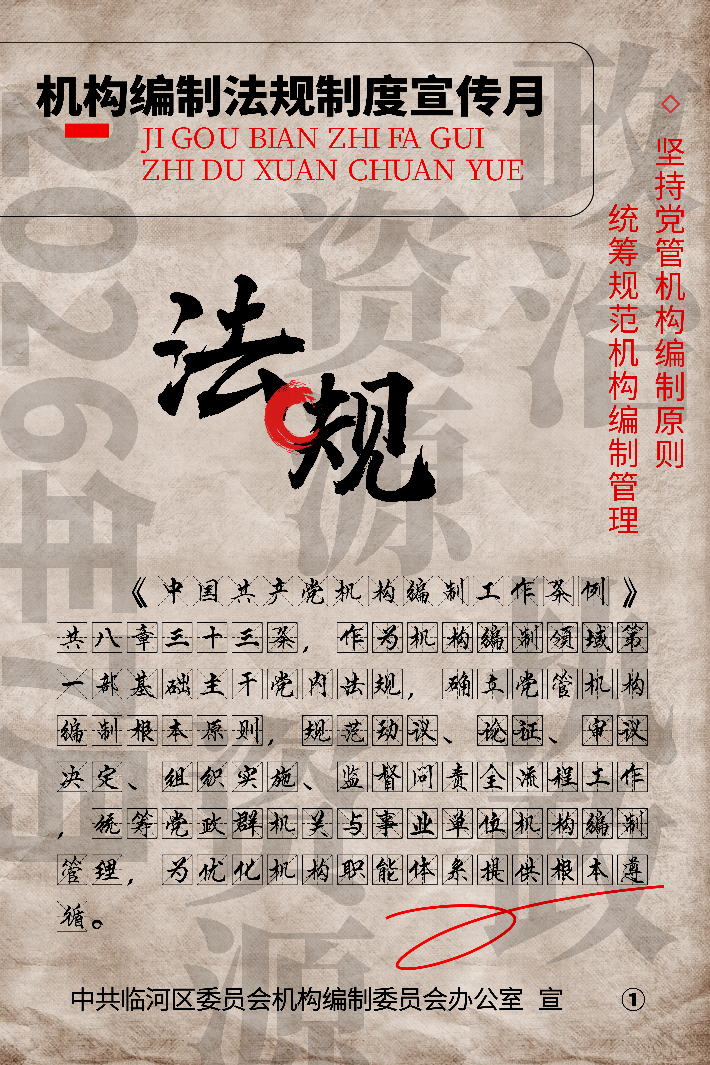 机构编制法规制度宣传月
JI GOU BIAN ZHI FA GUI
ZHI DU XUAN CHUAN YUE
坚持党管机构编制原则
统筹规范机构编制管理
政治
资源
2026年7月
法规
《中国共产党机构编制工作条例》
共八章三十三条，作为机构编制领域第
一部基础主干党内法规，确立党管机构
编制根本原则，规范动议、论证、审议
决定、组织实施、监督问责全流程工作
，统筹党政群机关与事业单位机构编制
管理，为优化机构职能体系提供根本遵
循。
执政
资源
中共临河区委员会机构编制委员会办公室 宣
①